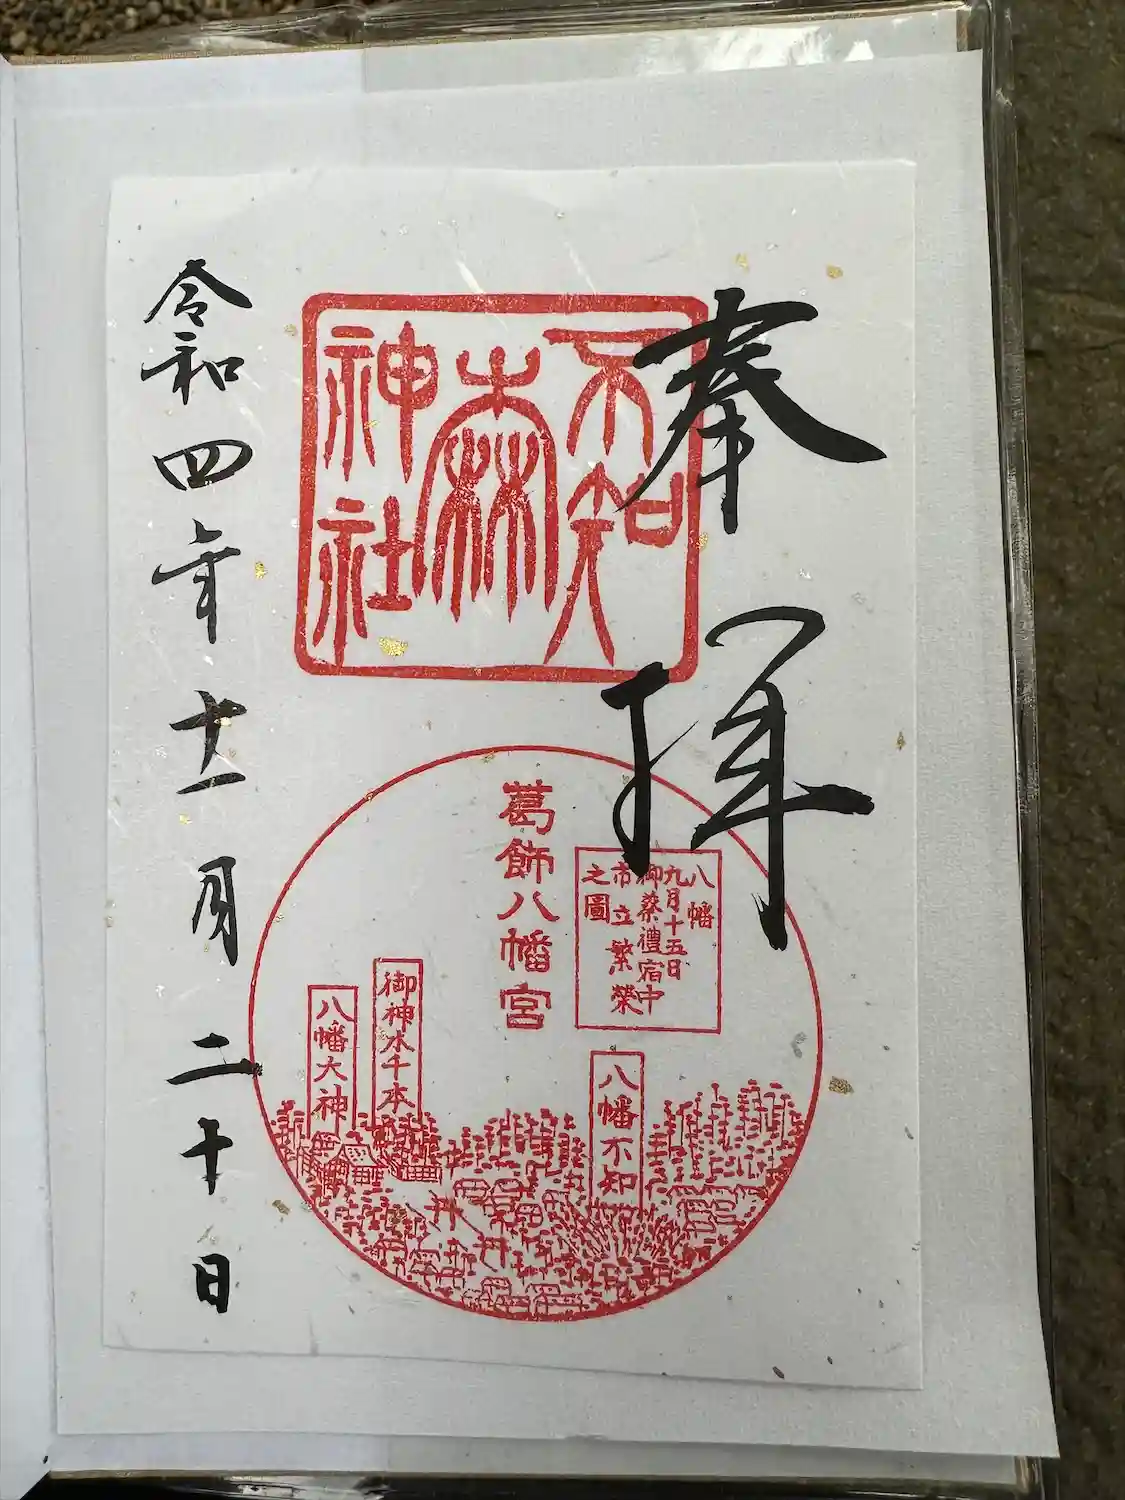 奉拝
不知
森
神社
葛飾八幡宮
八幡
九月十五日
御祭禮宿中
市立繁榮
之圖
八幡不知
御神木千本
八幡大神
令和四年十一月二十日